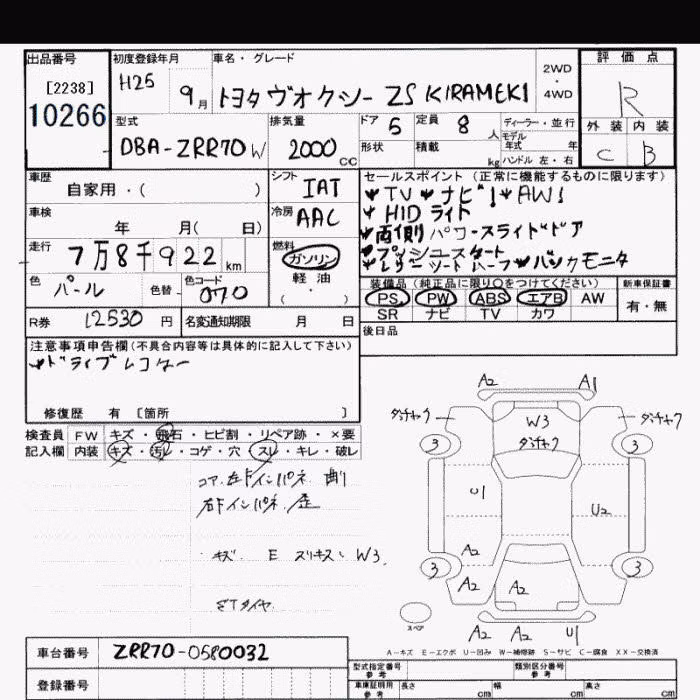 出品番号
[2238]
10266
初度登録年月
H25
9月
車名・グレード
トヨタ ヴォクシー ZS KIRAMEKI
2WD
・
4WD
評価点
R
外装 内装
C B
型式
DBA-ZRR70W
排気量
2000 CC
ドア 5
定員 8 人
形状
積載 kg
ディーラー・並行
モデル
年式 年
ハンドル 左・右
車歴
自家用・( )
シフト
IAT
車検
年 月( 日)
冷房
AAC
走行
7万8千922 km
燃料
ガソリン
軽油
( ・ )
色
パール
色替
色コード
070
R券 12530 円
名変通知期限 月 日
セールスポイント (正常に機能するものに限ります)
TV ナビ AW
HID ライト
両側パワースライドドア
プッシュスタート
レザーシートハーフ バックモニタ
装備品 (純正品に限り○をつけてください)
PS PW ABS エアB AW
SR ナビ TV カワ
新車保証書
有・無
後日品
注意事項申告欄 (不具合内容等は具体的に記入して下さい)
ドライブレコーダー
修復歴 有 [箇所 ]
検査員 FW キズ・飛石・ヒビ割・リペア跡・×要
記入欄 内装 キズ・汚レ・コゲ・穴・スレ・キレ・破レ
コア、左Fインパネ 曲り
右Fインパネ 歪
キズ E スリキズ W3
STタイヤ
A2 A1
ダッチャク ダッチャク
W3
ダッチャク
3 3
U1
U2
A2
3 3
A2 A2
スペア
A2 A2 U1
A-キズ E-エクボ U-凹み W-補修跡 S-サビ C-腐食 XX-交換済
車台番号 ZRR70-0580032
登録番号
型式指定番号
参考
類別区分番号
参考
車庫証明用
参考
長さ cm
幅 cm
高さ cm